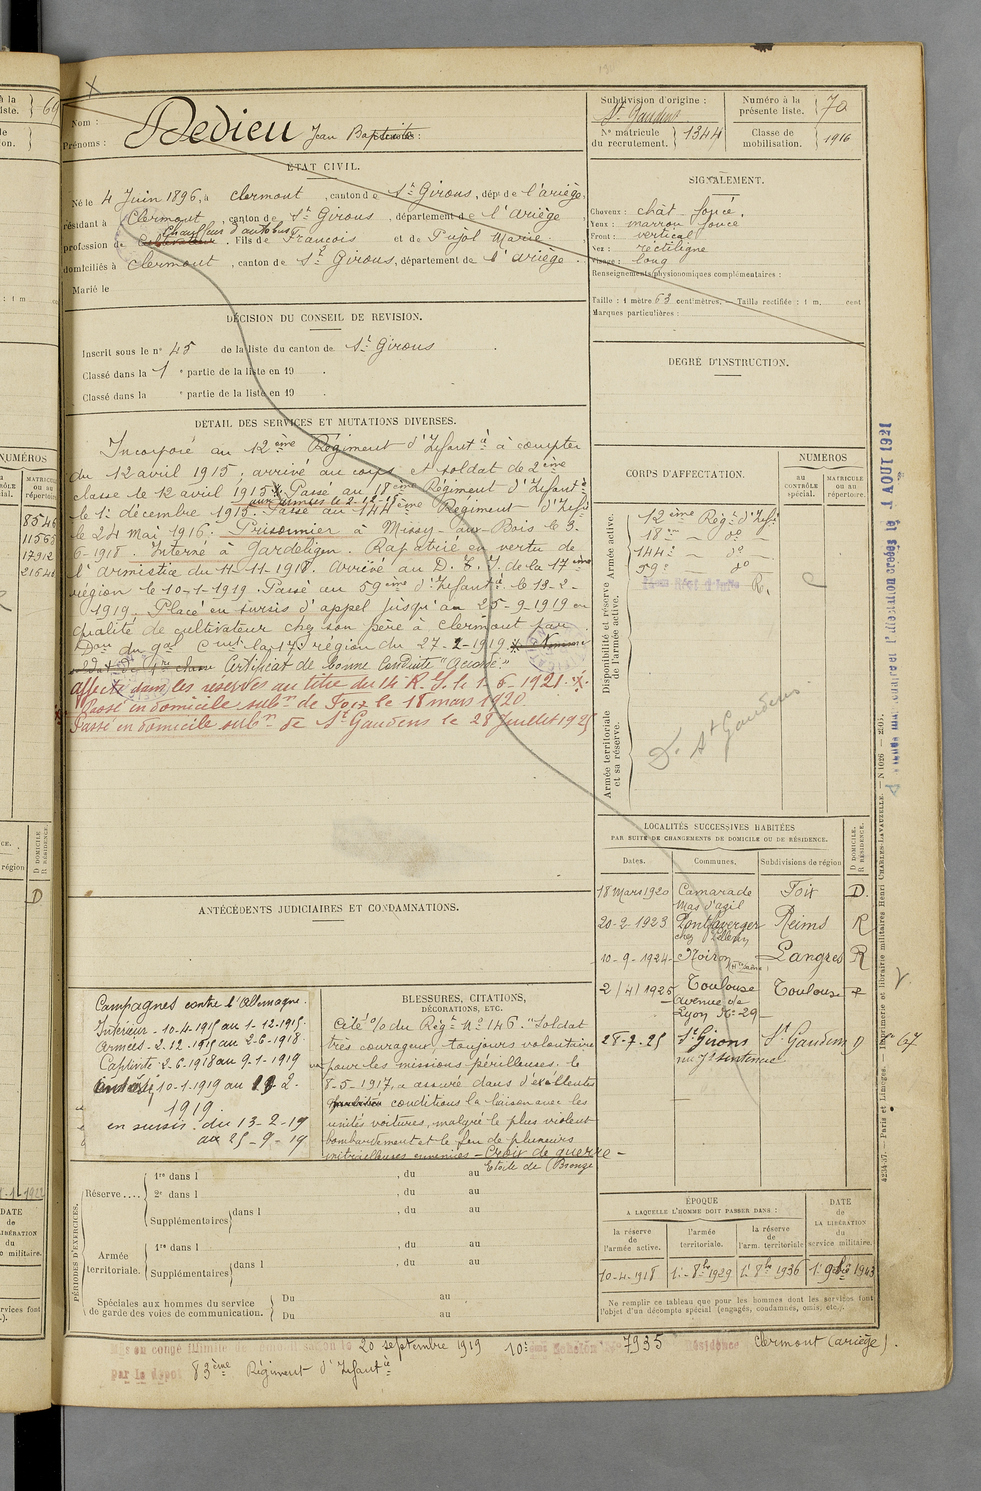 Nom : Dedieu
Prénoms : Jean Baptiste
Subdivision d'origine : St Gaudens
Numéro à la présente liste. 70
N° matricule du recrutement. 1344
Classe de mobilisation. 1916
ÉTAT CIVIL.
Né le 4 Juin 1896, à Clermont, canton de St Girons, dépt de l'ariège,
résidant à Clermont, canton de St Girons, département de l'ariège,
profession de Chauffeur d'autobus Cultivateur. Fils de François et de Pujol Marie
domiciliés à Clermont, canton de St Girons, département de l'ariège.
Marié le
SIGNALEMENT.
Cheveux : chât. foncé.
Yeux : marron foncé
Front : vertical
Nez : rectiligne
Visage : long
Renseignements physionomiques complémentaires :
Taille : 1 mètre 63 centimètres. — Taille rectifiée : 1 m, cent
Marques particulières :
DÉCISION DU CONSEIL DE REVISION.
Inscrit sous le n° 45 de la liste du canton de St Girons.
Classé dans la 1e partie de la liste en 19 .
Classé dans la e partie de la liste en 19 .
DEGRÉ D'INSTRUCTION.
DÉTAIL DES SERVICES ET MUTATIONS DIVERSES.
Incorporé au 12ème Régiment d'Infantie à compter
du 12 avril 1915, arrivé au corps et soldat de 2ème
classe le 12 avril 1915. Passé au 18ème Régiment d'Infantie
aux armées le 2-12-15
le 1er décembre 1915. Passé au 144ème Régiment d'Infie
le 24 mai 1916. Prisonnier à Missy-aux-Bois le 3-
6-1918. Interné à Gardelegen. Rapatrié en vertu de
l'armistice du 11-11-1918. Arrivé au D. T. I. de la 17ème
région le 10-1-1919. Passé au 59ème d'Infantie le 13-2-
1919. Placé en sursis d'appel jusqu'au 25-9-1919 en
qualité de cultivateur chez son père à Clermont par
Don du Gal Cmt la 17e région du 27-2-1919 Nommé
soldat de 1re classe Certificat de bonne conduite "accordé"
affecté dans les réserves au titre du 14 R. I. le 1-6-1921.
Passé en domicile subn de Foix le 18 mars 1920
Passé en domicile subn de St Gaudens le 28 Juillet 1925
CORPS D'AFFECTATION.
NUMÉROS
AU CONTRÔLE spécial.
MATRICULE OU AU répertoire.
Armée active.
12ème Régt d'Infie
18e — do —
144e — do —
59e — do
Disponibilité et réserve de l'armée active.
R.
Armée territoriale et sa réserve.
D. St Gaudens
LOCALITÉS SUCCESSIVES HABITÉES
PAR SUITE DE CHANGEMENTS DE DOMICILE OU DE RÉSIDENCE.
Dates. Communes. Subdivisions de région D DOMICILE. R RÉSIDENCE.
18 Mars 1920 Camarade Mas d'azil Foix D.
20-2-1923 Pontfaverger Reims R
10-9-1924 Noiron Langres R
2/4/1925 Toulouse avenue de Lyon No-29- Toulouse
28-7-25 St Girons St Gaudens D
ANTÉCÉDENTS JUDICIAIRES ET CONDAMNATIONS.
Campagnes contre l'Allemagne.
Intérieur - 10-4-1915 au 1-12-1915.
Armées - 2.12.1915 au 2-6-1918
Captivité - 2-6-1918 au 9-1-1919
10-1-1919 au 12-2-
1919.
en sursis : du 13-2-19
au 25-9-19
BLESSURES, CITATIONS, DÉCORATIONS, ETC.
Cité % du Régt No 146. "Soldat
très courageux, toujours volontaire
pour les missions périlleuses, le
8-5-1917, a assuré dans d'excellentes
conditions la liaison avec les
unités voitures, malgré le plus violent
bombardement et le feu de plusieurs
mitrailleuses ennemies - Croix de guerre -
Etoile de Bronze
PÉRIODES D'EXERCICES.
Réserve....
1re dans l , du au
2e dans l , du au
Supplémentaires dans l , du au
Armée territoriale.
1re dans l , du au
Supplémentaires dans l , du au
Spéciales aux hommes du service de garde des voies de communication.
Du au
Du au
ÉPOQUE
A LAQUELLE L'HOMME DOIT PASSER DANS :
la réserve de l'armée active. 10-4-1918
l'armée territoriale. 1er 8bre 1929
la réserve de l'arm. territoriale 1er 8bre 1936
DATE de LA LIBÉRATION du service militaire.
Ne remplir ce tableau que pour les hommes dont les services font l'objet d'un décompte spécial (engagés, condamnés, omis, etc.).
Mis en congé illimité de démobilisation le 20 septembre 1919 10e Echelon No 7935 Résidence Clermont (ariège).
par le dépôt 83ème Régiment d'Infantie
4234-97. — Paris et Limoges. — Imprimerie et librairie militaires Henri CHARLES-LAVAUZELLE. — N 1026